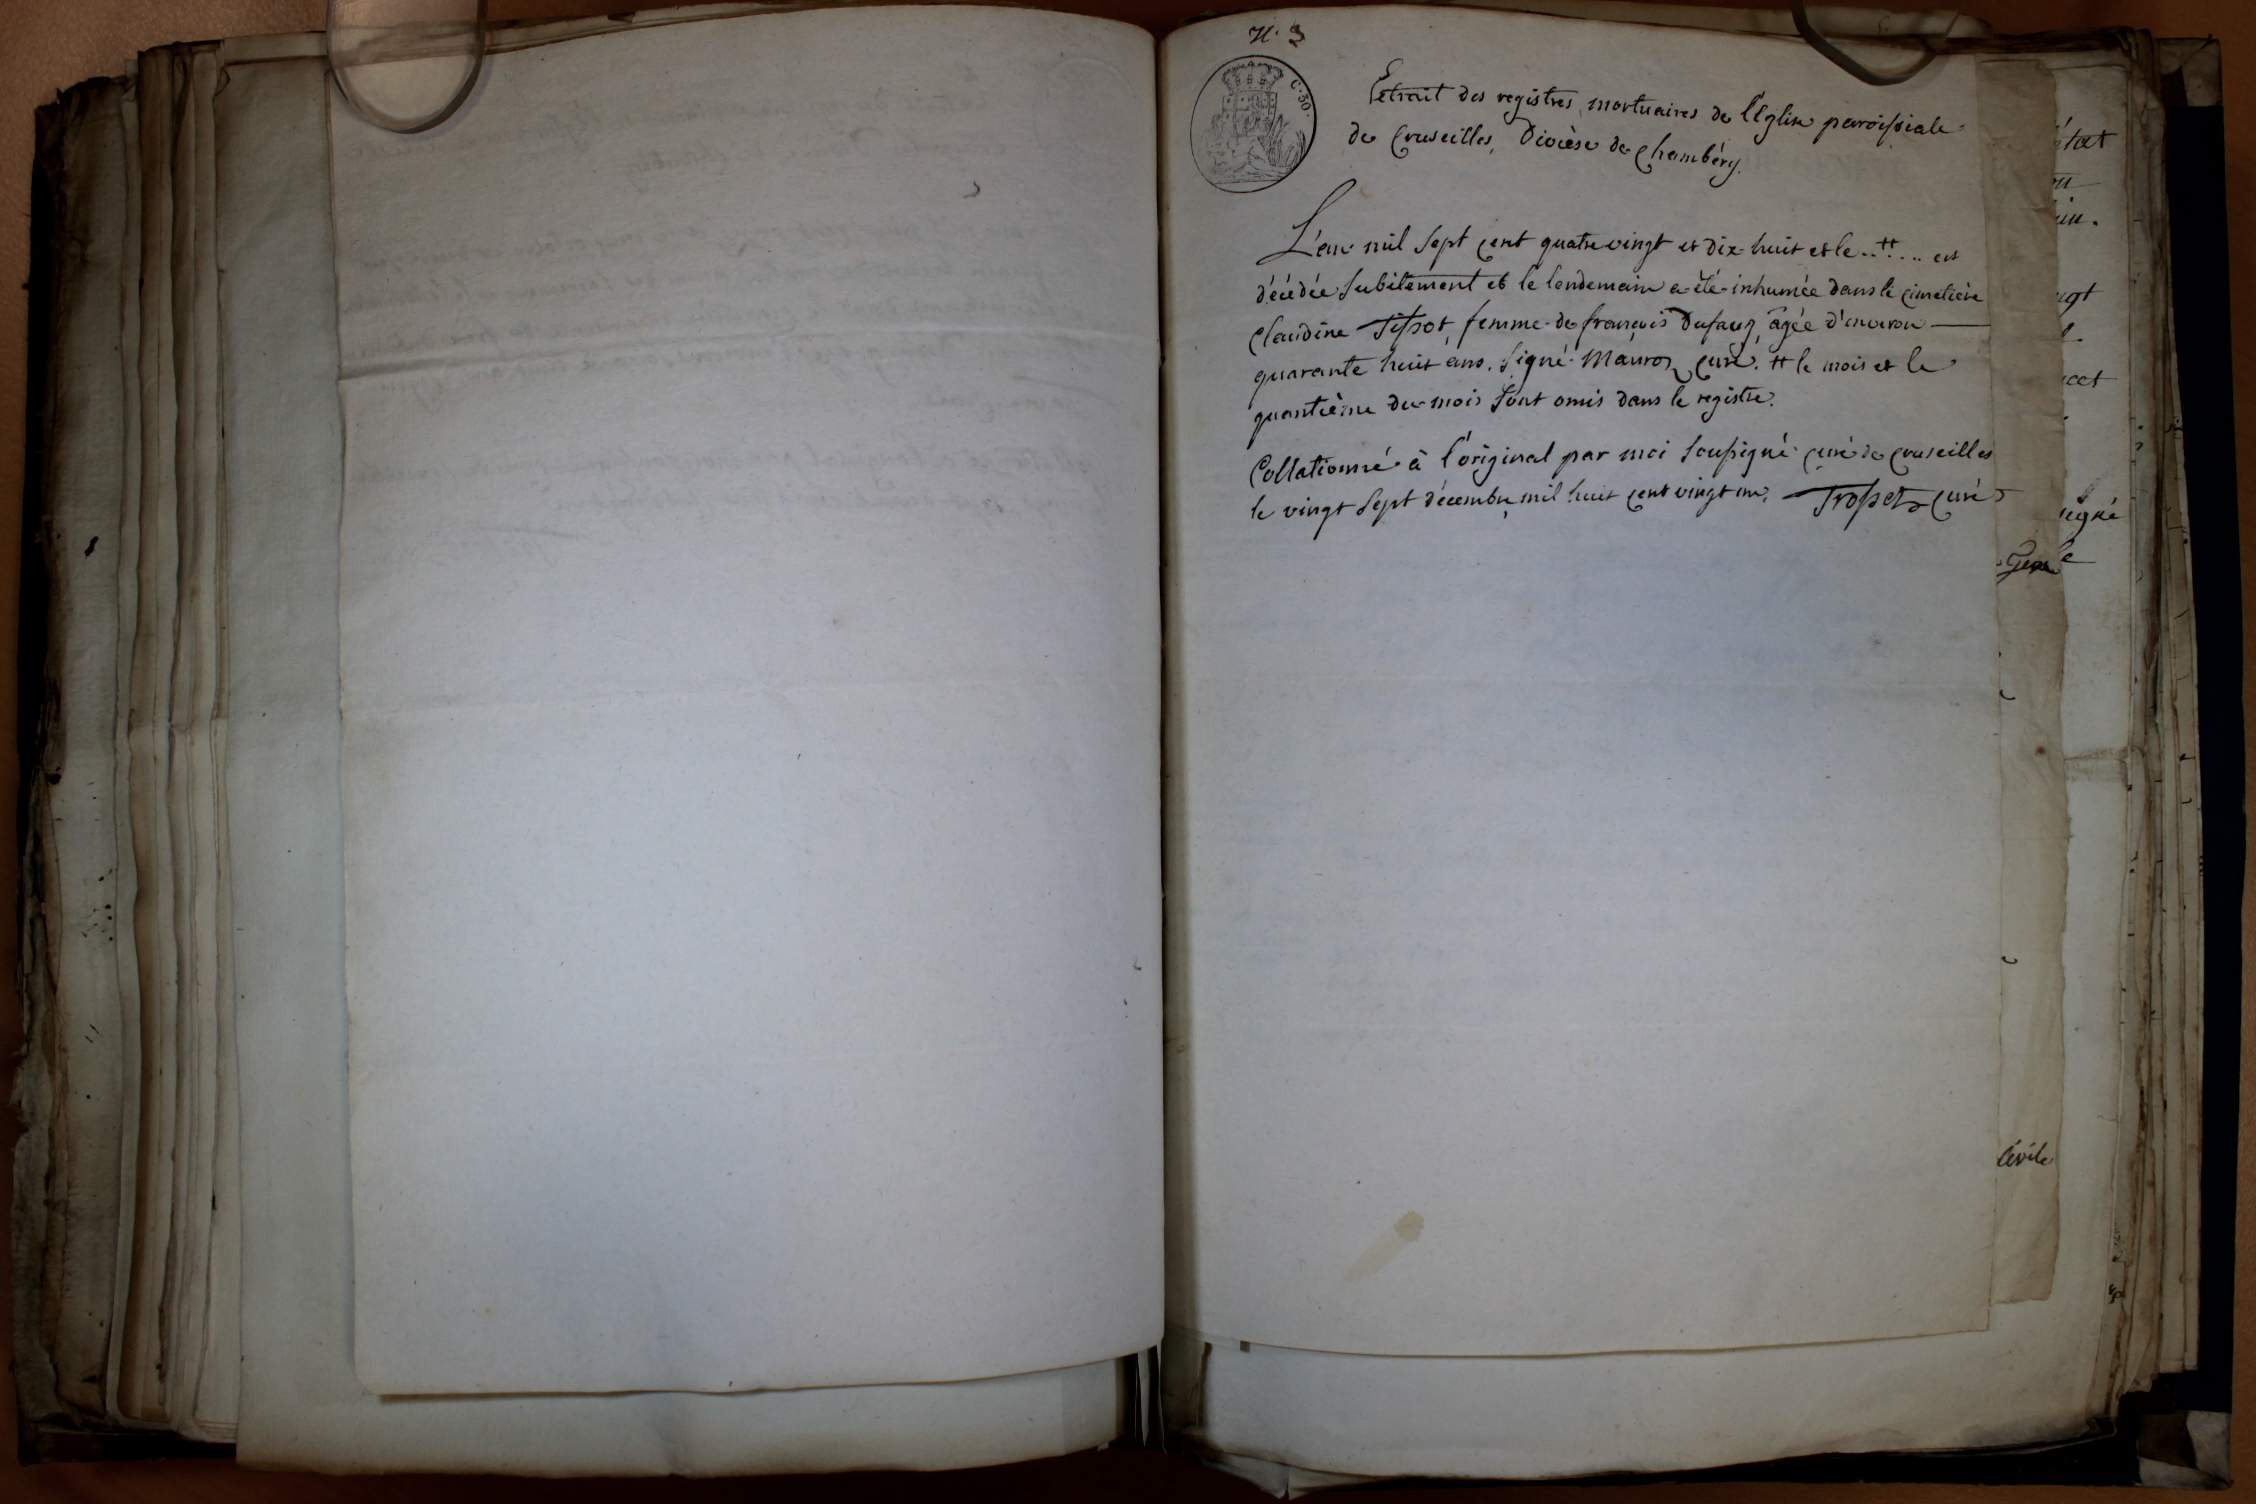 N. 3
C. 30.
Extrait des registres mortuaires de l'Eglise paroissiale
de Cruseilles, Diocèse de Chambéry.
L'an mil sept cent quatre vingt et dix-huit et le .. ++ .. est
décédée subitement et le lendemain a été inhumée dans le cimetière
Claudine Tissot, femme de françois Dufaug, âgée d'environ —
quarante huit ans. Signé Mauroz curé. ++ le mois et le
quantième du mois sont omis dans le registre.
Collationné à l'original par moi soussigné curé de Cruseilles
le vingt sept décembre mil huit cent vingt un. Trosset curé
état
signé
civile